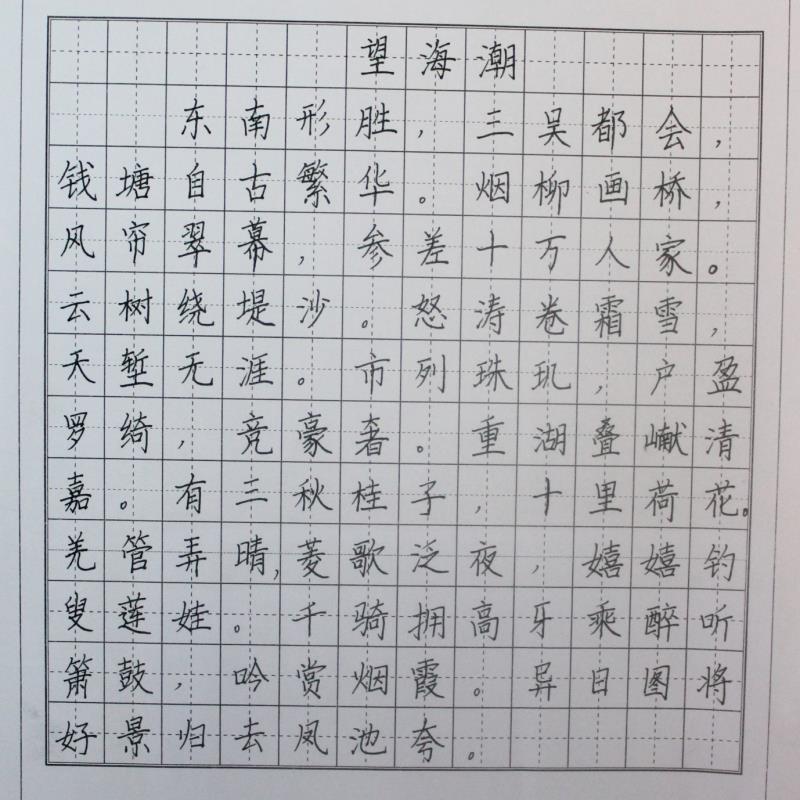 望海潮
东南形胜，三吴都会，
钱塘自古繁华。烟柳画桥，
风帘翠幕，参差十万人家。
云树绕堤沙。怒涛卷霜雪，
天堑无涯。市列珠玑，户盈
罗绮，竞豪奢。重湖叠巘清
嘉。有三秋桂子，十里荷花。
羌管弄晴，菱歌泛夜，嬉嬉钓
叟莲娃。千骑拥高牙乘醉听
箫鼓，吟赏烟霞。异日图将
好景归去凤池夸。